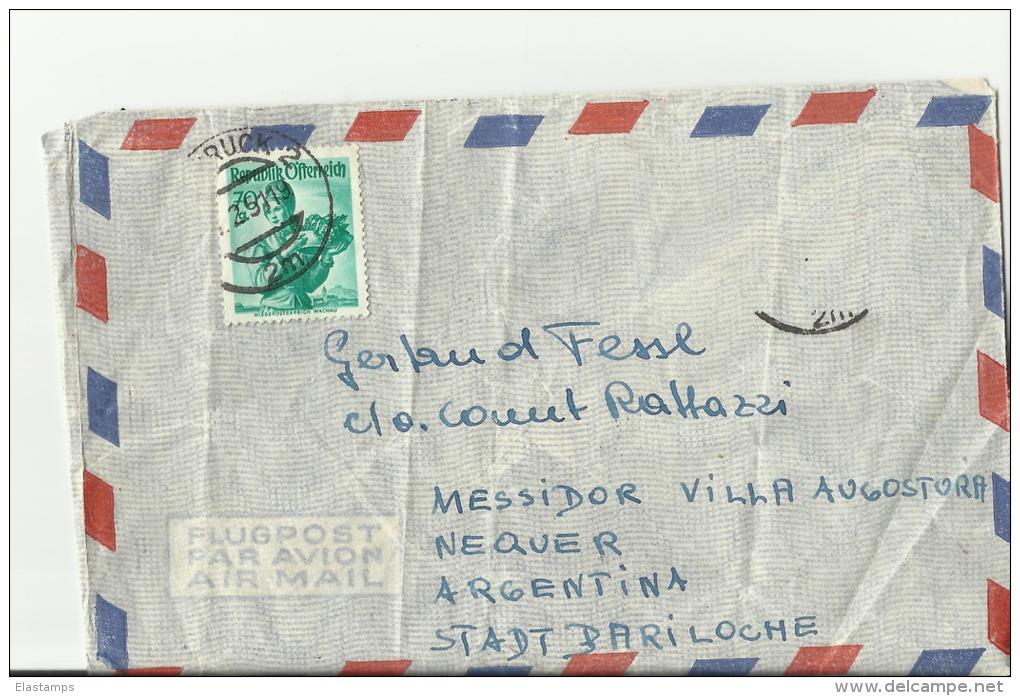 RUCK 2
Republik Österreich
70
2.51 19
2m
NIEDERÖSTERREICH WACHAU
2m
Gertaud Fessl
c/o. Count Rattazzi
MESSIDOR VILLA AUGOSTURA
NEQUER
ARGENTINA
STADT BARILOCHE
FLUGPOST
PAR AVION
AIR MAIL
Elastamps
www.delcampe.net